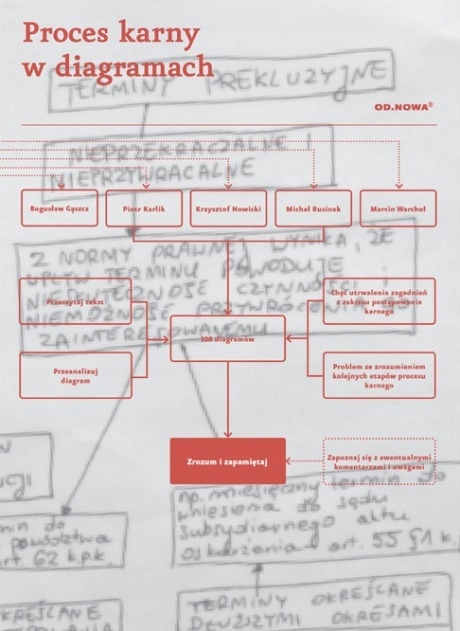 Proces karny
w diagramach
TERMINY PREKLUZYJNE
OD.NOWA®
NIEPRZEKRACZALNE I
NIEPRZYWRACALNE
Bogusław Gąszcz
Piotr Karlik
Krzysztof Nowicki
Michał Rusinek
Marcin Warchoł
Z NORMY PRAWNEJ WYNIKA, ŻE
UPŁYW TERMINU POWODUJE
NIESKUTECZNOŚĆ CZYNNOŚCI I
NIEMOŻNOŚĆ PRZYWRÓCENIA GO
ZAINTERESOWANEMU
Przeczytaj tekst
Chęć utrwalenia zagadnień
z zakresu postępowania
karnego
108 diagramów
Przeanalizuj
diagram
Problem ze zrozumieniem
kolejnych etapów procesu
karnego
Zrozum i zapamiętaj
Zapoznaj się z ewentualnymi
komentarzami i uwagami
np. miesięczny termin do
wniesienia do sądu
subsydiarnego aktu
oskarżenia art. 55 §1 k.
min do
powództwa
art. 62 k.p.k.
KREŚLANE
TERMINY OKREŚLANE
DŁUŻSZYMI OKRESAMI